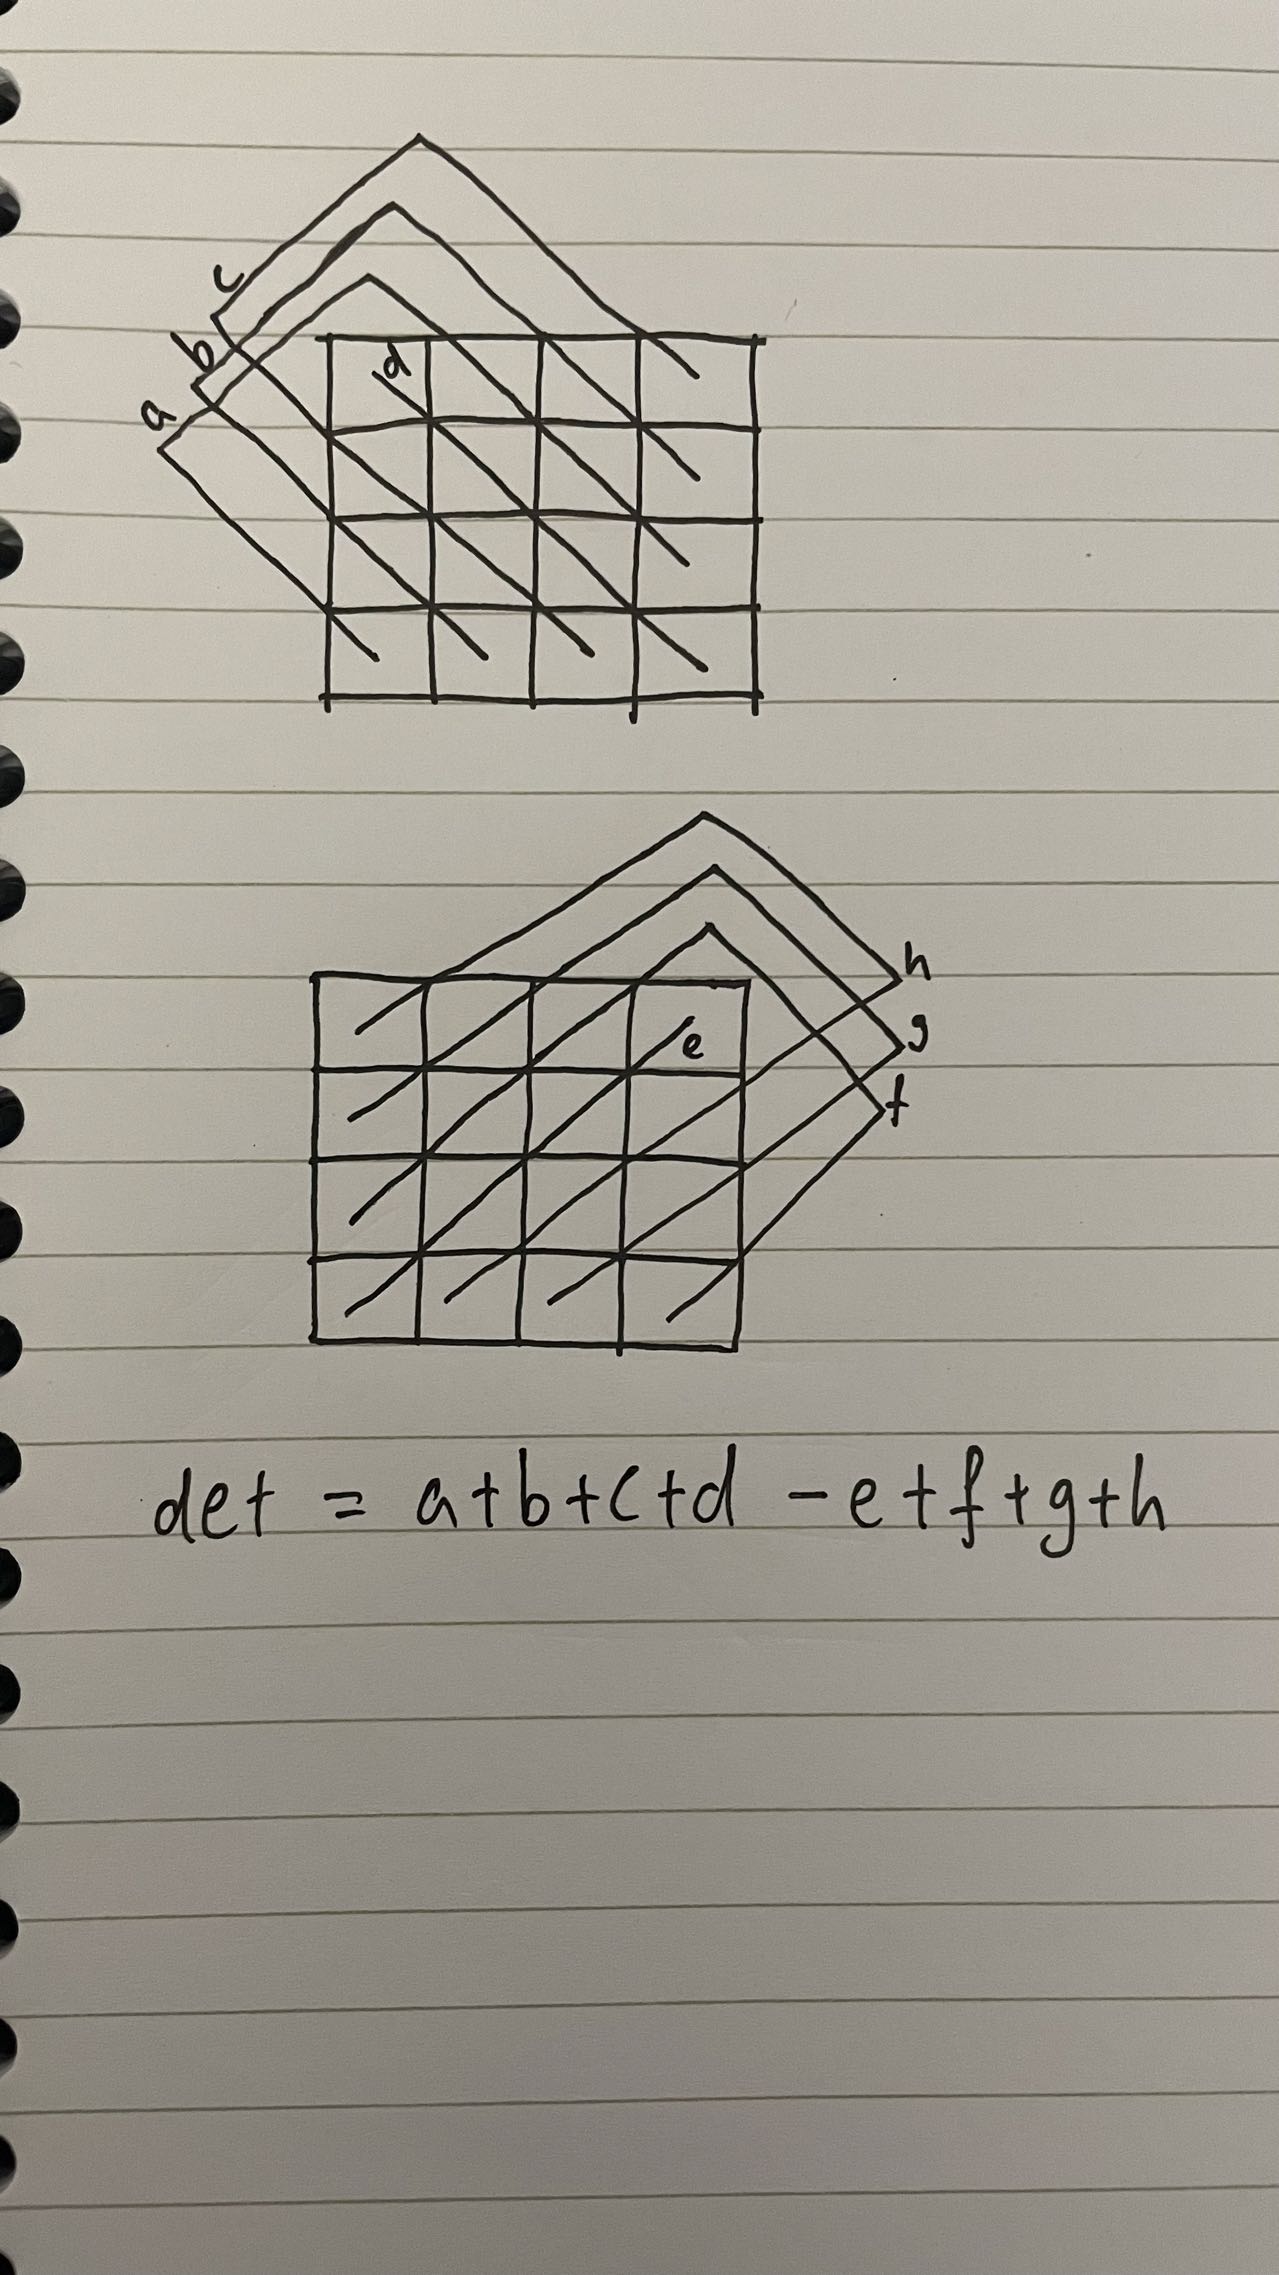 c
b
a
d
h
g
e
f
det = a+b+c+d - e+f+g+h